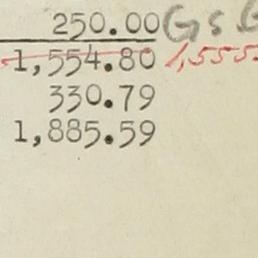 250.00 G s G
1,554.80 1,555.
330.79
1,885.59